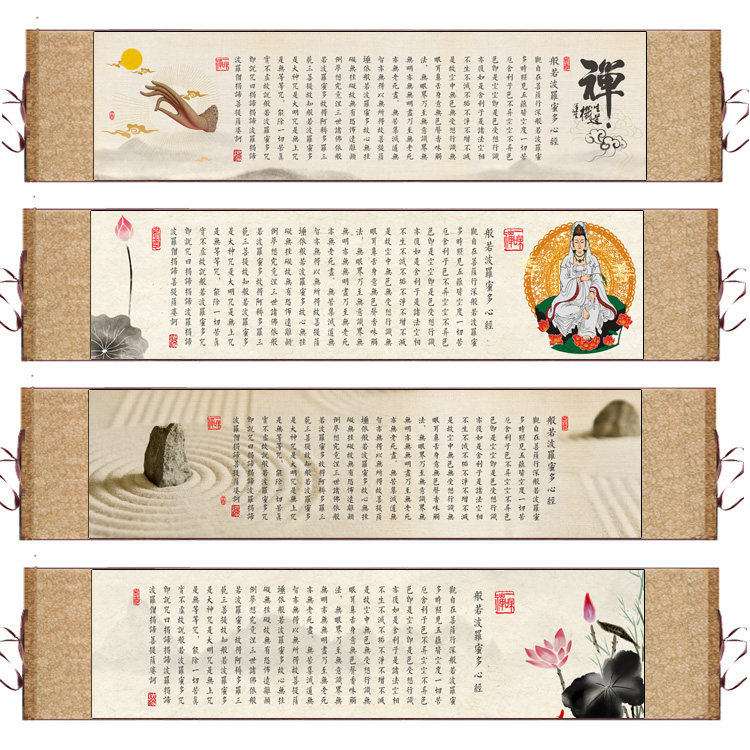 禪
般若波羅蜜多心經
觀自在菩薩行深般若波羅蜜
多時照見五蘊皆空度一切苦
厄舍利子色不異空空不異色
色即是空空即是色受想行識
亦復如是舍利子是諸法空相
不生不滅不垢不淨不增不減
是故空中無色無受想行識無
眼耳鼻舌身意無色聲香味觸
法，無眼界乃至無意識界無
無明亦無無明盡乃至無老死
亦無老死盡，無苦集滅道無
智亦無得以無所得故菩提薩
埵依般若波羅蜜多故心無罣
礙無罣礙故無有恐怖遠離顛
倒夢想究竟涅三世諸佛依般
若波羅蜜多故得阿耨多羅三
藐三菩提故知般若波羅蜜多
是大神咒是大明咒是無上咒
是無等等咒，能除一切苦真
實不虛故說般若波羅蜜多咒
即說咒曰揭諦揭諦波羅揭諦
波羅僧揭諦菩提薩婆訶
般若波羅蜜多心經
觀自在菩薩行深般若波羅蜜
多時照見五蘊皆空度一切苦
厄舍利子色不異空空不異色
色即是空空即是色受想行識
亦復如是舍利子是諸法空相
不生不滅不垢不淨不增不減
是故空中無色無受想行識無
眼耳鼻舌身意無色聲香味觸
法，無眼界乃至無意識界無
無明亦無無明盡乃至無老死
亦無老死盡，無苦集滅道無
智亦無得以無所得故菩提薩
埵依般若波羅蜜多故心無罣
礙無罣礙故無有恐怖遠離顛
倒夢想究竟涅三世諸佛依般
若波羅蜜多故得阿耨多羅三
藐三菩提故知般若波羅蜜多
是大神咒是大明咒是無上咒
是無等等咒，能除一切苦真
實不虛故說般若波羅蜜多咒
即說咒曰揭諦揭諦波羅揭諦
波羅僧揭諦菩提薩婆訶
般若波羅蜜多心經
觀自在菩薩行深般若波羅蜜
多時照見五蘊皆空度一切苦
厄舍利子色不異空空不異色
色即是空空即是色受想行識
亦復如是舍利子是諸法空相
不生不滅不垢不淨不增不減
是故空中無色無受想行識無
眼耳鼻舌身意無色聲香味觸
法，無眼界乃至無意識界無
無明亦無無明盡乃至無老死
亦無老死盡，無苦集滅道無
智亦無得以無所得故菩提薩
埵依般若波羅蜜多故心無罣
礙無罣礙故無有恐怖遠離顛
倒夢想究竟涅三世諸佛依般
若波羅蜜多故得阿耨多羅三
藐三菩提故知般若波羅蜜多
是大神咒是大明咒是無上咒
是無等等咒，能除一切苦真
實不虛故說般若波羅蜜多咒
即說咒曰揭諦揭諦波羅揭諦
波羅僧揭諦菩提薩婆訶
般若波羅蜜多心經
觀自在菩薩行深般若波羅蜜
多時照見五蘊皆空度一切苦
厄舍利子色不異空空不異色
色即是空空即是色受想行識
亦復如是舍利子是諸法空相
不生不滅不垢不淨不增不減
是故空中無色無受想行識無
眼耳鼻舌身意無色聲香味觸
法，無眼界乃至無意識界無
無明亦無無明盡乃至無老死
亦無老死盡，無苦集滅道無
智亦無得以無所得故菩提薩
埵依般若波羅蜜多故心無罣
礙無罣礙故無有恐怖遠離顛
倒夢想究竟涅三世諸佛依般
若波羅蜜多故得阿耨多羅三
藐三菩提故知般若波羅蜜多
是大神咒是大明咒是無上咒
是無等等咒，能除一切苦真
實不虛故說般若波羅蜜多咒
即說咒曰揭諦揭諦波羅揭諦
波羅僧揭諦菩提薩婆訶